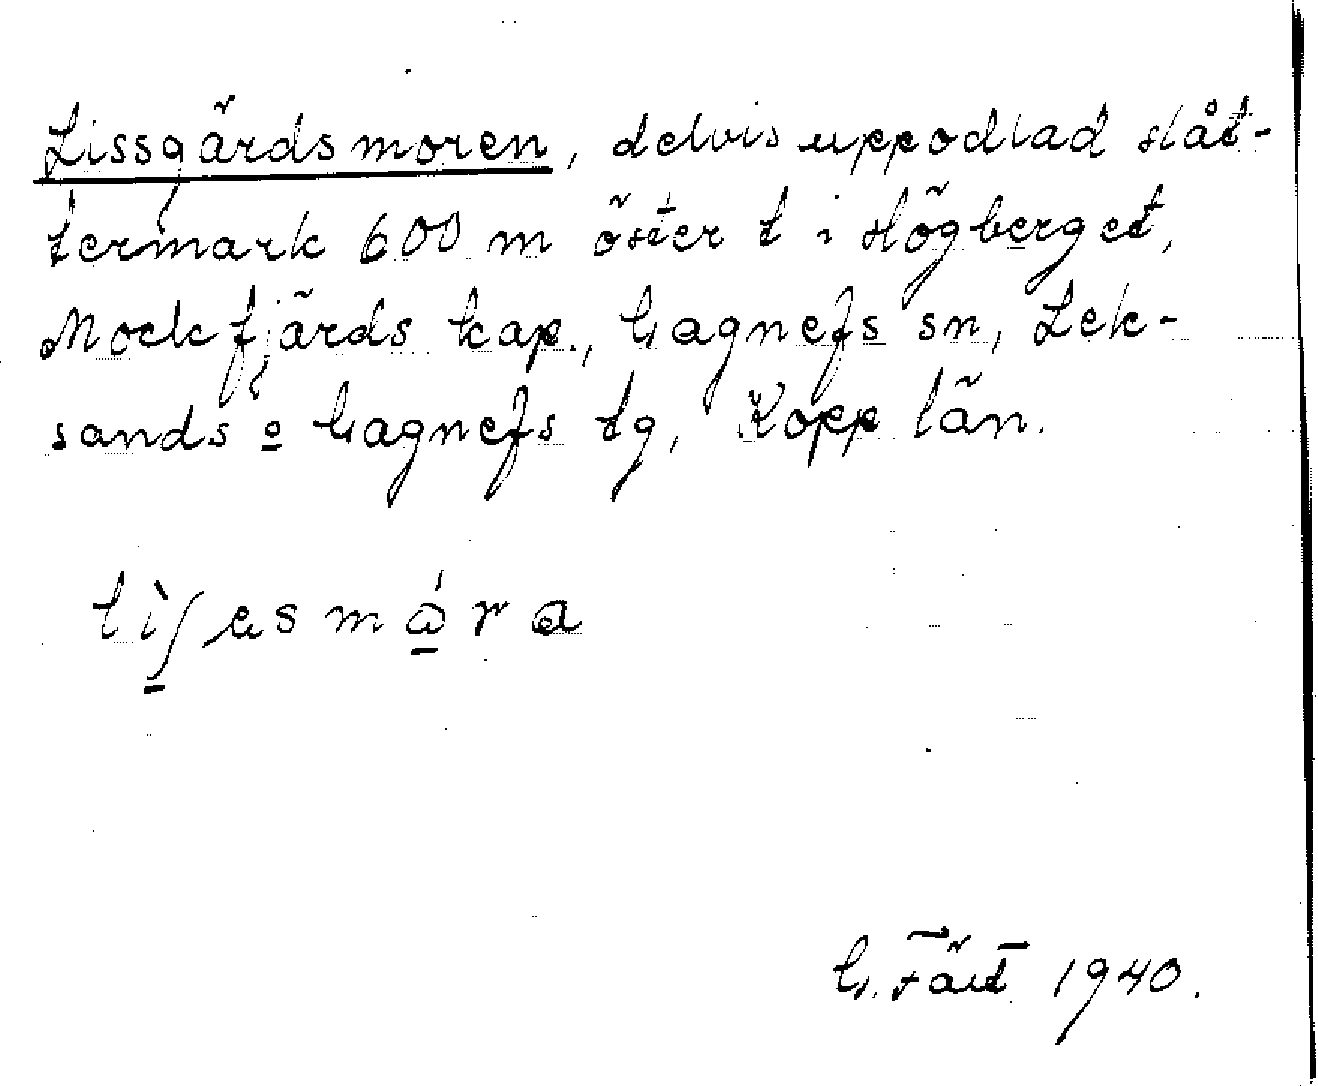 Lissgärdsmoren, delvis uppodlad slåt-
termark 600 m öster t i Högberget,
Mockfjärds kap., Gagnefs sn, Lek-
sands o Gagnefs tg, Kopp län.
G. 1940.